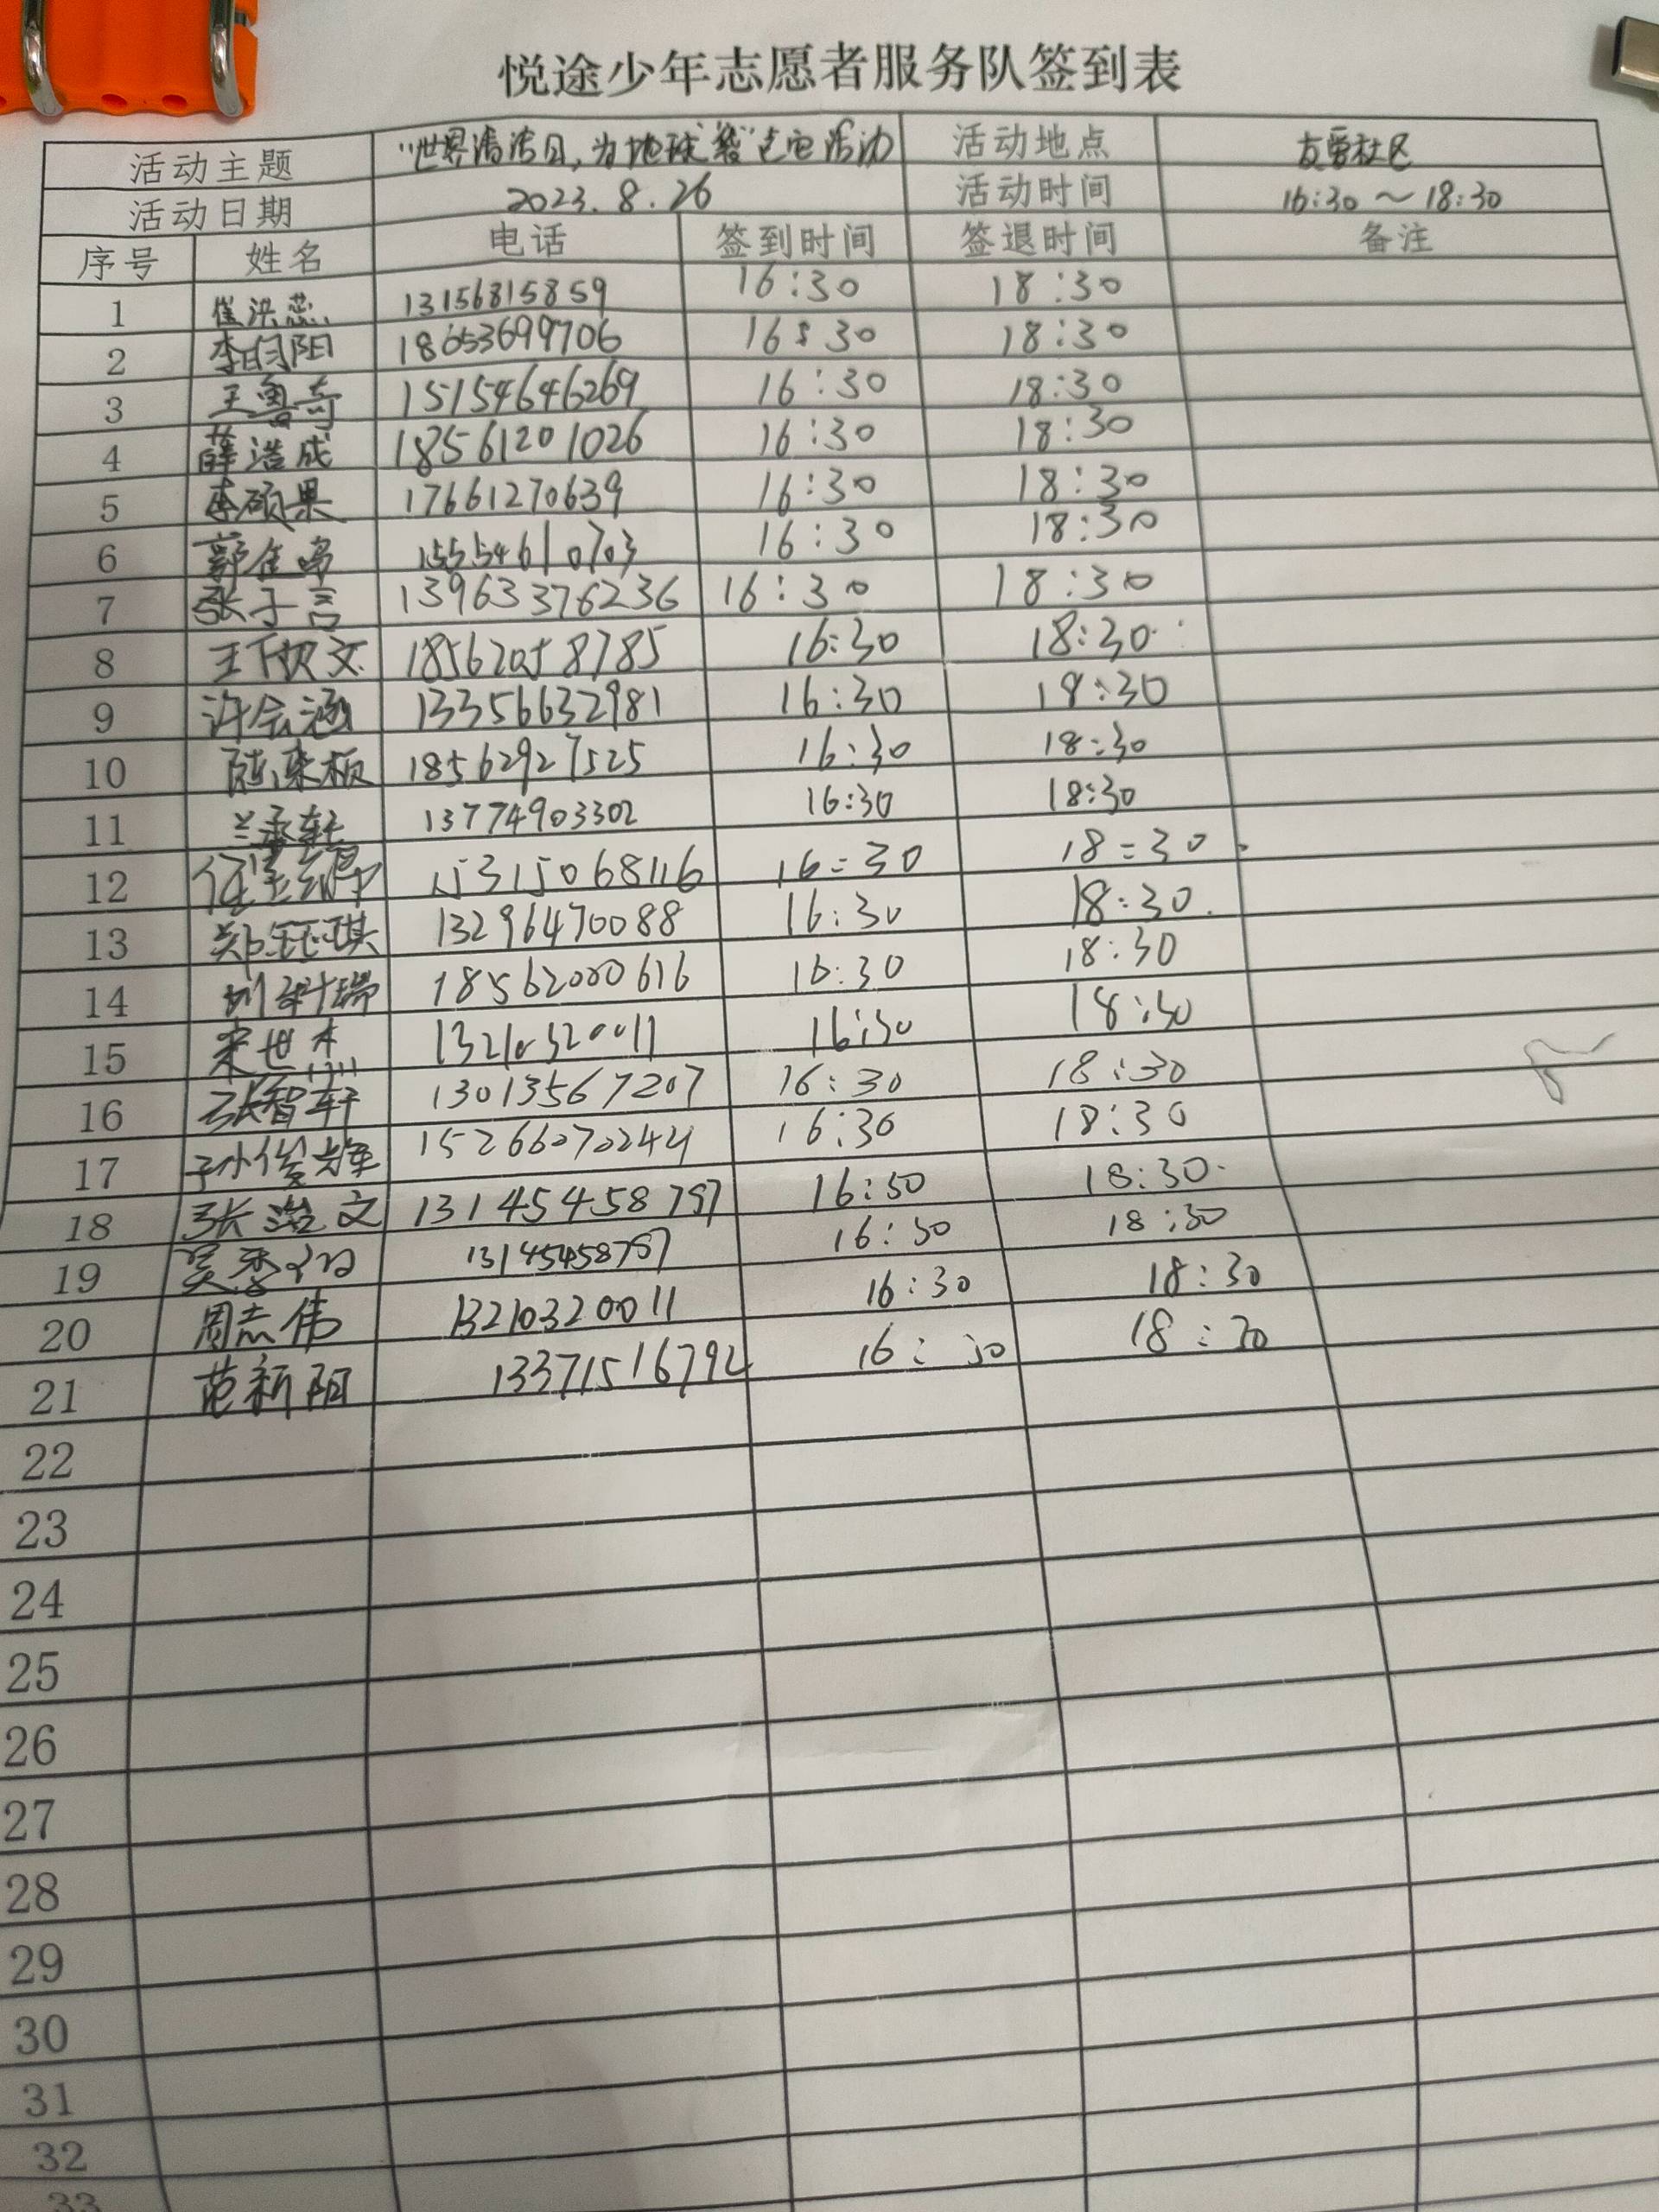 悦途少年志愿者服务队签到表
活动主题 "世界清洁日,为地球袋"充电活动 活动地点 友爱社区
活动日期 2023.8.26 活动时间 16:30～18:30
序号 姓名 电话 签到时间 签退时间 备注
1 崔洪蕊 13156815859 16:30 18:30
2 李昀阳 18653699706 16:30 18:30
3 王鲁奇 15154646269 16:30 18:30
4 薛浩成 18561201026 16:30 18:30
5 李硕果 17661270639 16:30 18:30
6 郭金鸣 15554610703 16:30 18:30
7 张子言 13963376236 16:30 18:30
8 王文 18562058785 16:30 18:30
9 许会涵 13356632981 16:30 18:30
10 陈桢 18562927525 16:30 18:30
11 兰承轩 13774903302 16:30 18:30
12 15315068116 16:30 18:30
13 郑钰琪 13296470088 16:30 18:30
14 瑞 18562000616 16:30 18:30
15 宋世杰 13210320011 16:30 18:30
16 张智轩 13013567207 16:30 18:30
17 孙俊雄 15266070244 16:30 18:30
18 张浩文 13145458797 16:30 18:30
19 吴 13145458797 16:30 18:30
20 周志伟 13210320011 16:30 18:30
21 范新阳 13371516792 16:30 18:30
22
23
24
25
26
27
28
29
30
31
32
33